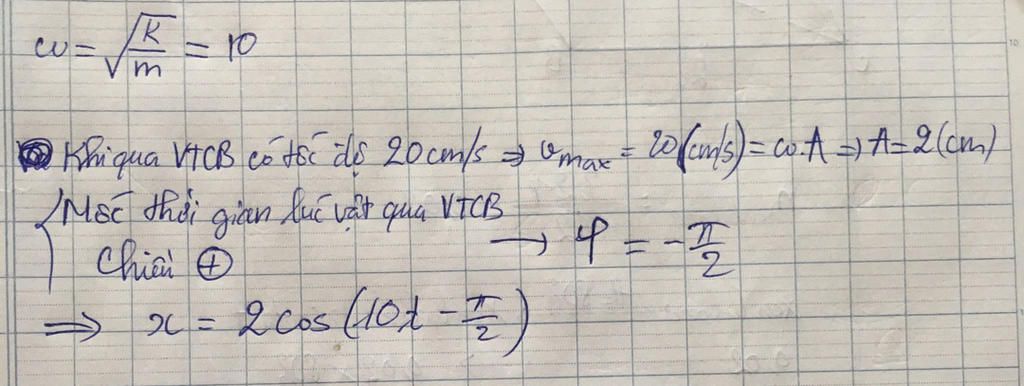 ω = √(k/m) = 10
Khi qua VTCB có tốc độ 20cm/s ⇒ v_max = 20 (cm/s) = ω.A ⇒ A = 2 (cm)
{ Mốc thời gian lúc vật qua VTCB
Chiều ⊕ → φ = -π/2
⇒ x = 2cos(10t - π/2)